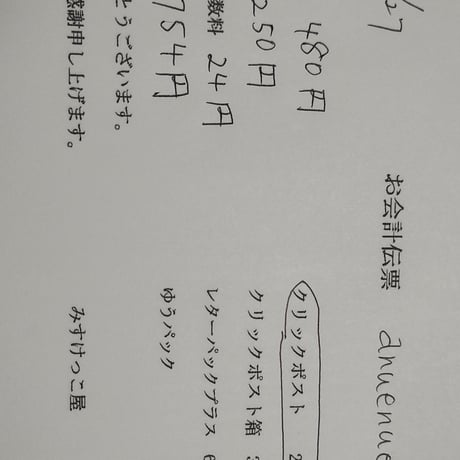 27
お会計伝票 anuenue
480円
クリックポスト 2
250円
クリックポスト箱 3
数料 24円
レターパックプラス 6
754円
ゆうパック
とうございます。
感謝申し上げます。
みすけっこ屋